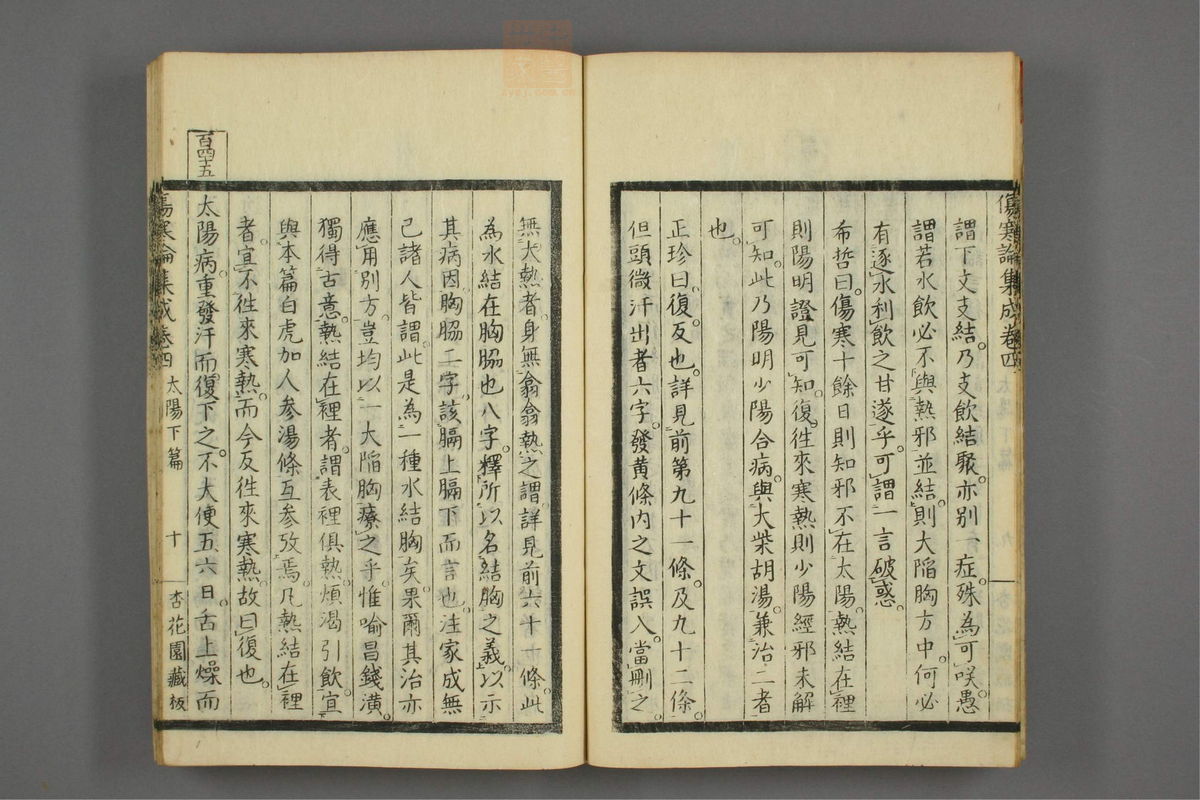 傷寒論集成卷四
謂下文支結乃支飲結聚亦別一症殊為可咲愚
謂若水飲必不與熱邪並結則大陥胸方中何必
有逐水利飲之甘遂乎可謂一言破惑
希哲曰傷寒十餘日則知邪不在太陽熱結在裡
則陽明證見可知復徃來寒熱則少陽經邪未解
可知此乃陽明少陽合病與大柴胡湯兼治二者
也
正珍曰復反也詳見前第九十一條及九十二條
但頭微汗出者六字發黄條內之文誤入當刪之
無大熱者身無翕翕熱之謂詳見前六十一條此
為水結在胸脇也八字釋所以名結胸之義以示
其病因胸脇二字該膈上膈下而言也注家成無
己諸人皆謂此是為一種水結胸矣果爾其治亦
應用別方豈均以一大陥胸療之乎惟喻昌錢潢
獨得古意熱結在裡者謂表裡俱熱煩渴引飲宜
與本篇白虎加人参湯條互参攷焉凡熱結在裡
者宜不徃來寒熱而今反徃來寒熱故曰復也
百四十五
太陽病重發汗而復下之不大便五六日舌上燥而
傷寒論集成卷四 太陽下篇 十 杏花園藏板